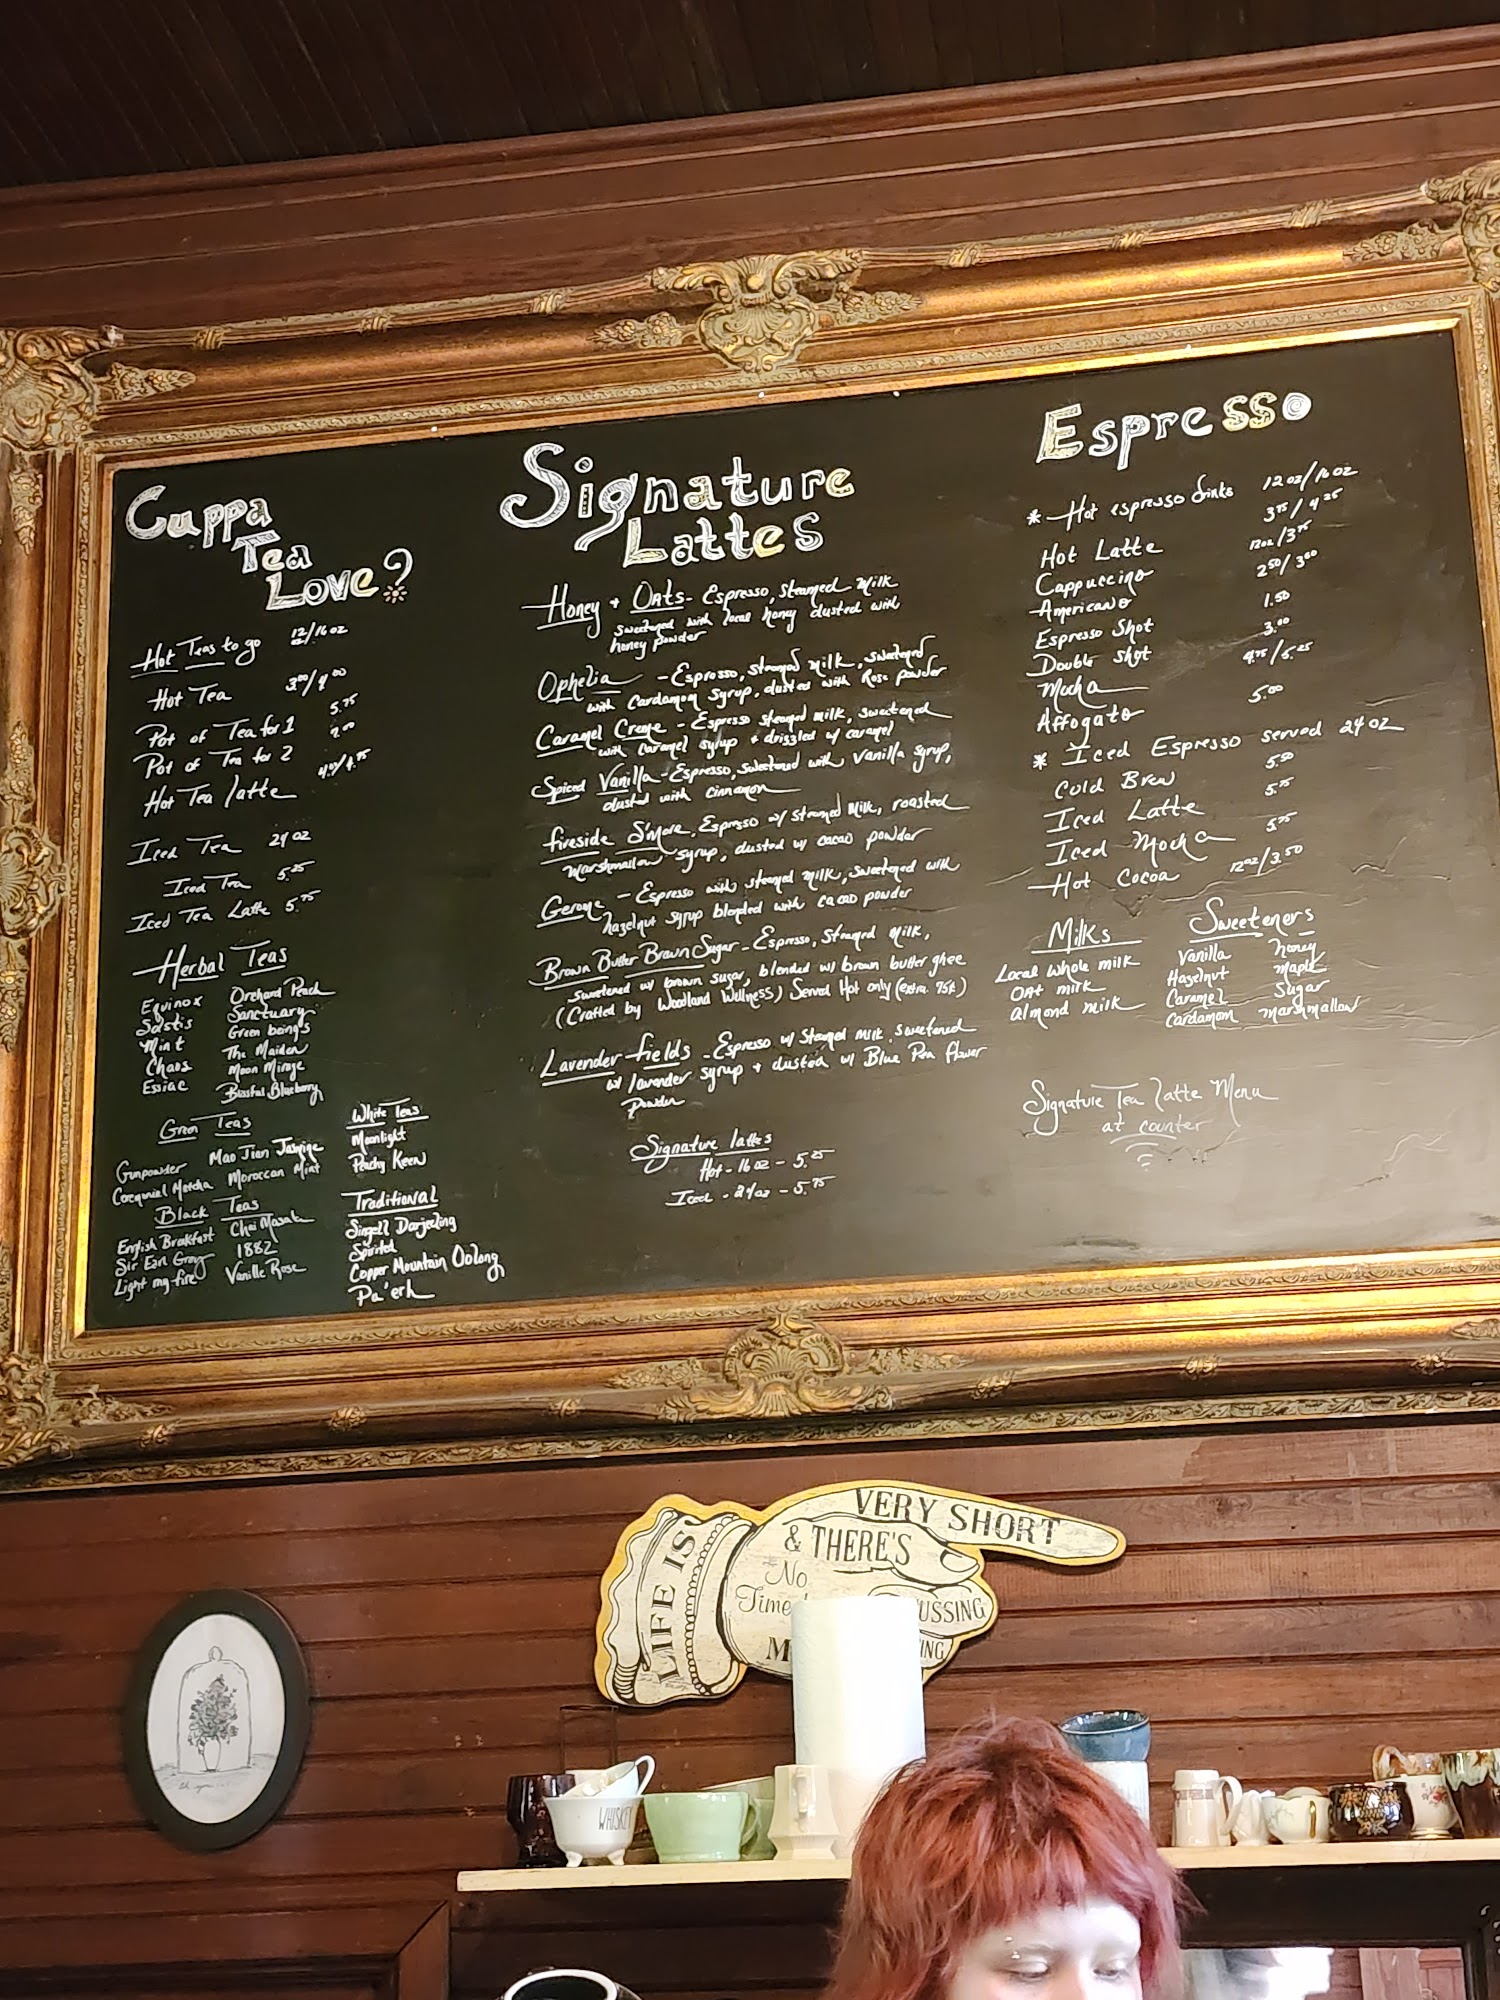 Cuppa
Tea
Love?
Hot Teas to go 12/16 oz
Hot Tea 3.00/4.00
Pot of Tea for 1 5.75
Pot of Tea for 2
Hot Tea latte 4.00/4.75
Iced Tea 24 oz
Iced Tea 5.25
Iced Tea Latte 5.75
Herbal Teas
Equinox Orchard Peach
Solstis Sanctuary
Mint Green beings
Chaos The Maiden
Essiac Moon Mirage
Blissful Blueberry
Green Teas
Gunpowder Mao Jian Jasmine
Ceremonial Matcha Moroccan Mint
Black Teas
English Breakfast Chai Masala
Sir Earl Grey 1882
Light my fire Vanille Rose
White Teas
Moonlight
Peachy Keen
Traditional
Singell Darjeeling
Spirited
Copper Mountain Oolong
Pu'erh
Signature
Lattes
Honey + Oats - Espresso, steamed milk
sweetened with local honey dusted with
honey powder
Ophelia - Espresso, steamed milk, sweetened
with Cardamom syrup, dusted with Rose powder
Caramel Creme - Espresso steamed milk, sweetened
with caramel syrup + drizzled w/ caramel
Spiced Vanilla - Espresso, sweetened with vanilla syrup,
dusted with cinnamon
Fireside S'more. Espresso w/ steamed milk, roasted
marshmallow syrup, dusted w/ cacao powder
Gerome - Espresso with steamed milk, sweetened with
hazelnut syrup blended with cacao powder
Brown Butter Brown Sugar - Espresso, steamed milk,
sweetened w/ brown sugar, blended w/ brown butter ghee
(Crafted by Woodland Wellness) Served Hot only (extra .75¢)
Lavender fields - Espresso w/ steamed milk sweetened
w/ lavender syrup + dusted w/ Blue Pea flower
powder
Signature lattes
Hot - 16 oz - 5.25
Iced - 24 oz - 5.75
Espresso
* Hot espresso drinks 12 oz/16 oz
Hot Latte 3.75/4.25
Cappuccino 12oz/3.75
Americano 2.50/3.00
Espresso Shot 1.50
Double shot 3.00
Mocha 4.75/5.25
Affogato 5.00
* Iced Espresso served 24 oz
Cold Brew 5.50
Iced Latte 5.75
Iced Mocha 5.75
Hot Cocoa 12oz/3.50
Milks
Local whole milk
OAt milk
almond milk
Sweeteners
Vanilla honey
Hazelnut maple
Caramel Sugar
Cardamom marshmallow
Signature Tea latte Menu
at counter
LIFE IS
VERY SHORT
& THERE'S
No
Time
USSING
M ING
WHISKEY